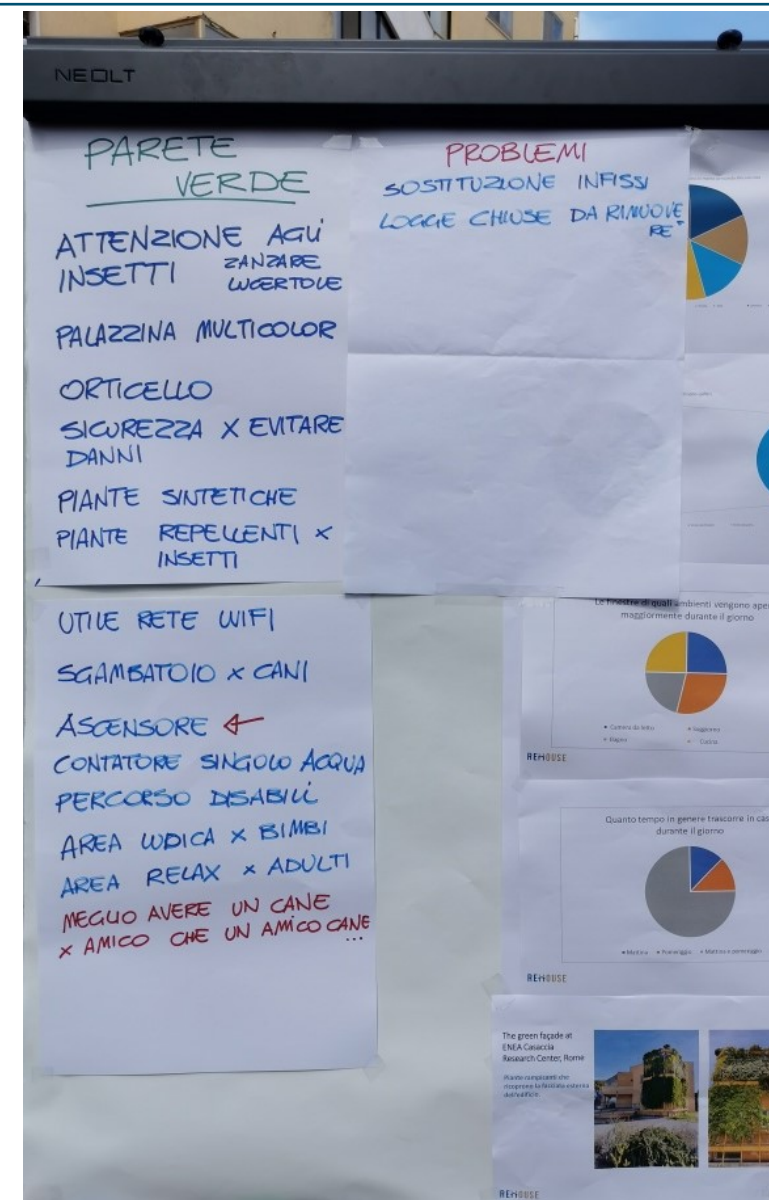 NEOLT
PARETE
VERDE
ATTENZIONE AGLI
INSETTI ZANZARE
LUCERTOLE
PALAZZINA MULTICOLOR
ORTICELLO
SICUREZZA X EVITARE
DANNI
PIANTE SINTETICHE
PIANTE REPELLENTI X
INSETTI
PROBLEMI
SOSTITUZIONE INFISSI
LOGGE CHIUSE DA RIMUOVE
RE
UTILE RETE WIFI
SGAMBATOIO X CANI
ASCENSORE
CONTATORE SINGOLO ACQUA
PERCORSO DISABILI
AREA LUDICA X BIMBI
AREA RELAX X ADULTI
MEGLIO AVERE UN CANE
X AMICO CHE UN AMICO CANE
...
Le finestre di quali ambienti vengono aper
maggiormente durante il giorno
Camera da letto Soggiorno
Bagno Cucina
REHOUSE
Quanto tempo in genere trascorre in cas
durante il giorno
Mattina Pomeriggio Mattina e pomeriggio
REHOUSE
The green façade at
ENEA Casaccia
Research Center, Rome
Piante rampicanti che
ricoprono la facciata esterna
dell'edificio.
REHOUSE